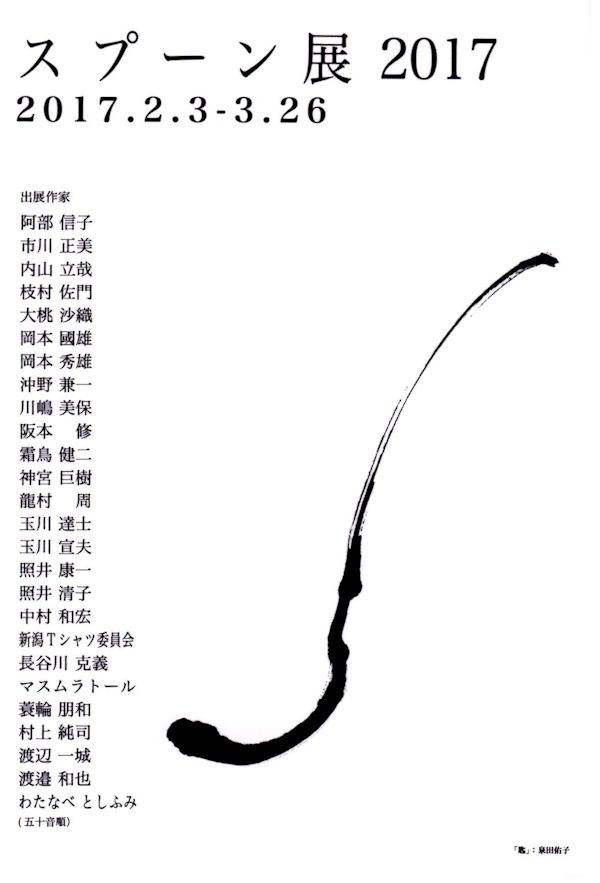 スプーン展 2017
2017.2.3-3.26
出展作家
阿部 信子
市川 正美
内山 立哉
枝村 佐門
大桃 沙織
岡本 國雄
岡本 秀雄
沖野 兼一
川嶋 美保
阪本　修
霜鳥 健二
神宮 巨樹
龍村　周
玉川 達士
玉川 宣夫
照井 康一
照井 清子
中村 和宏
新潟Tシャツ委員会
長谷川 克義
マスムラトール
蓑輪 朋和
村上 純司
渡辺 一城
渡邉 和也
わたなべ としふみ
(五十音順)
「匙」: 泉田佑子